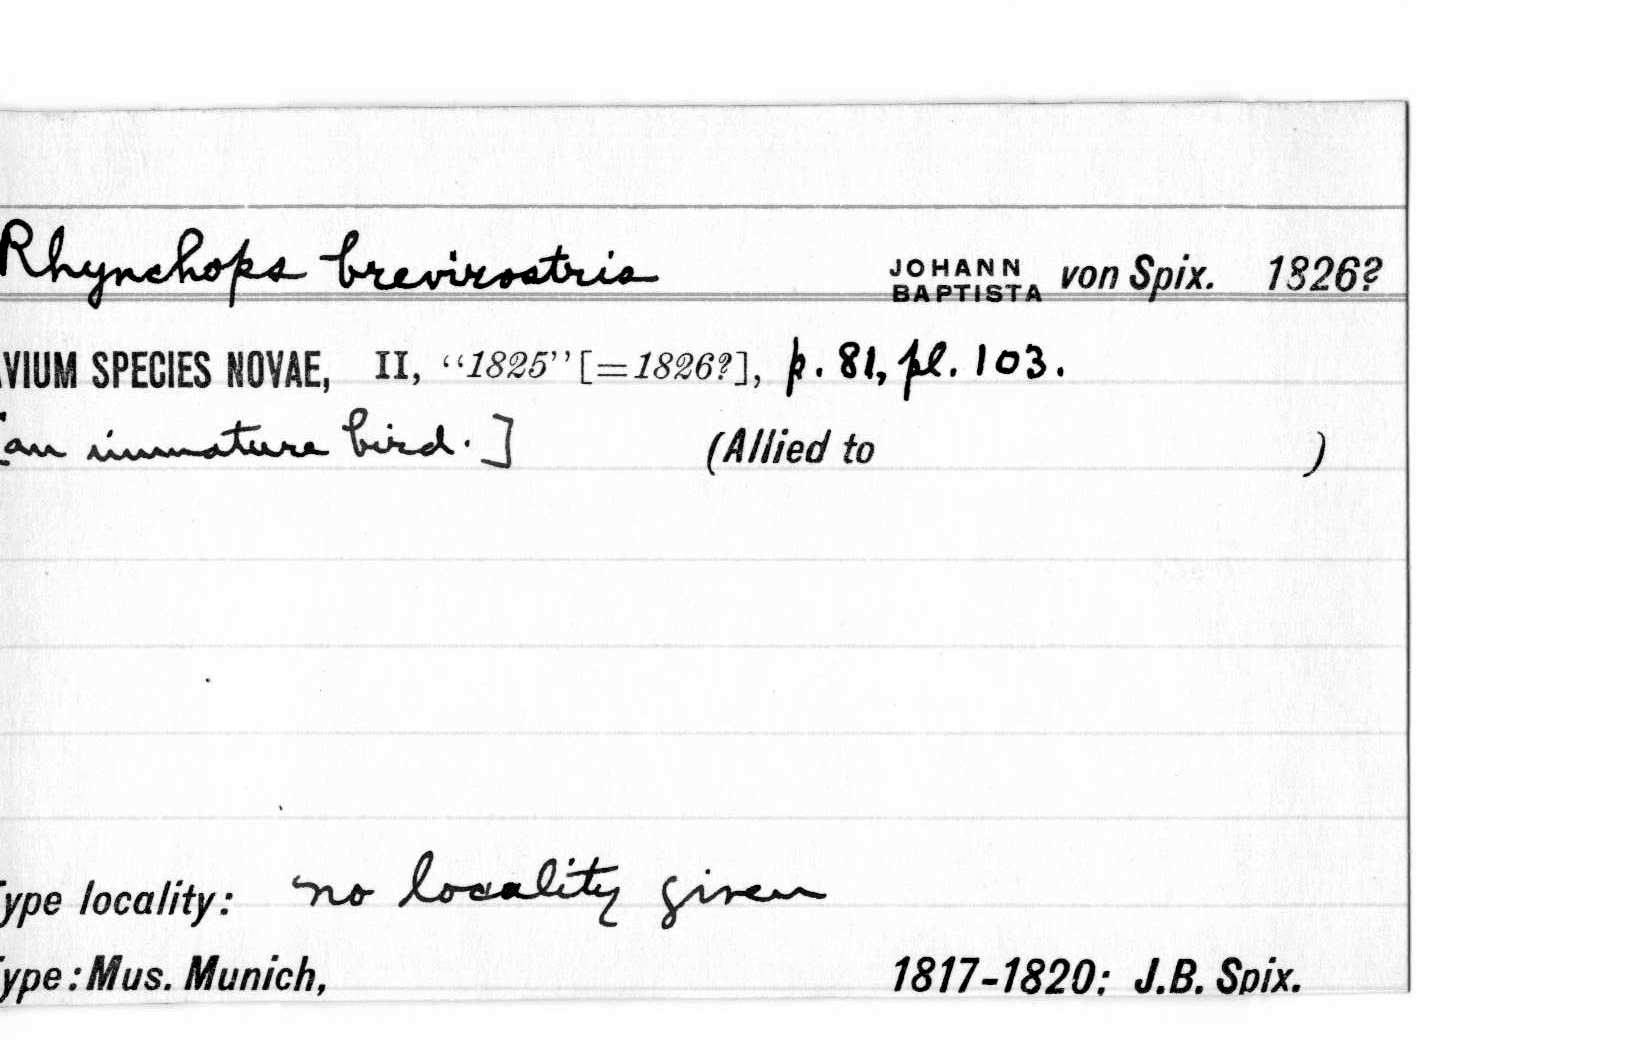 Rhynchops brevirostris JOHANN BAPTISTA von Spix. 1826?
AVIUM SPECIES NOVAE, II, “1825” [=1826?], p. 81, pl. 103.
[an immature bird.] (Allied to )
Type locality: no locality given
Type: Mus. Munich, 1817-1820; J.B. Spix.